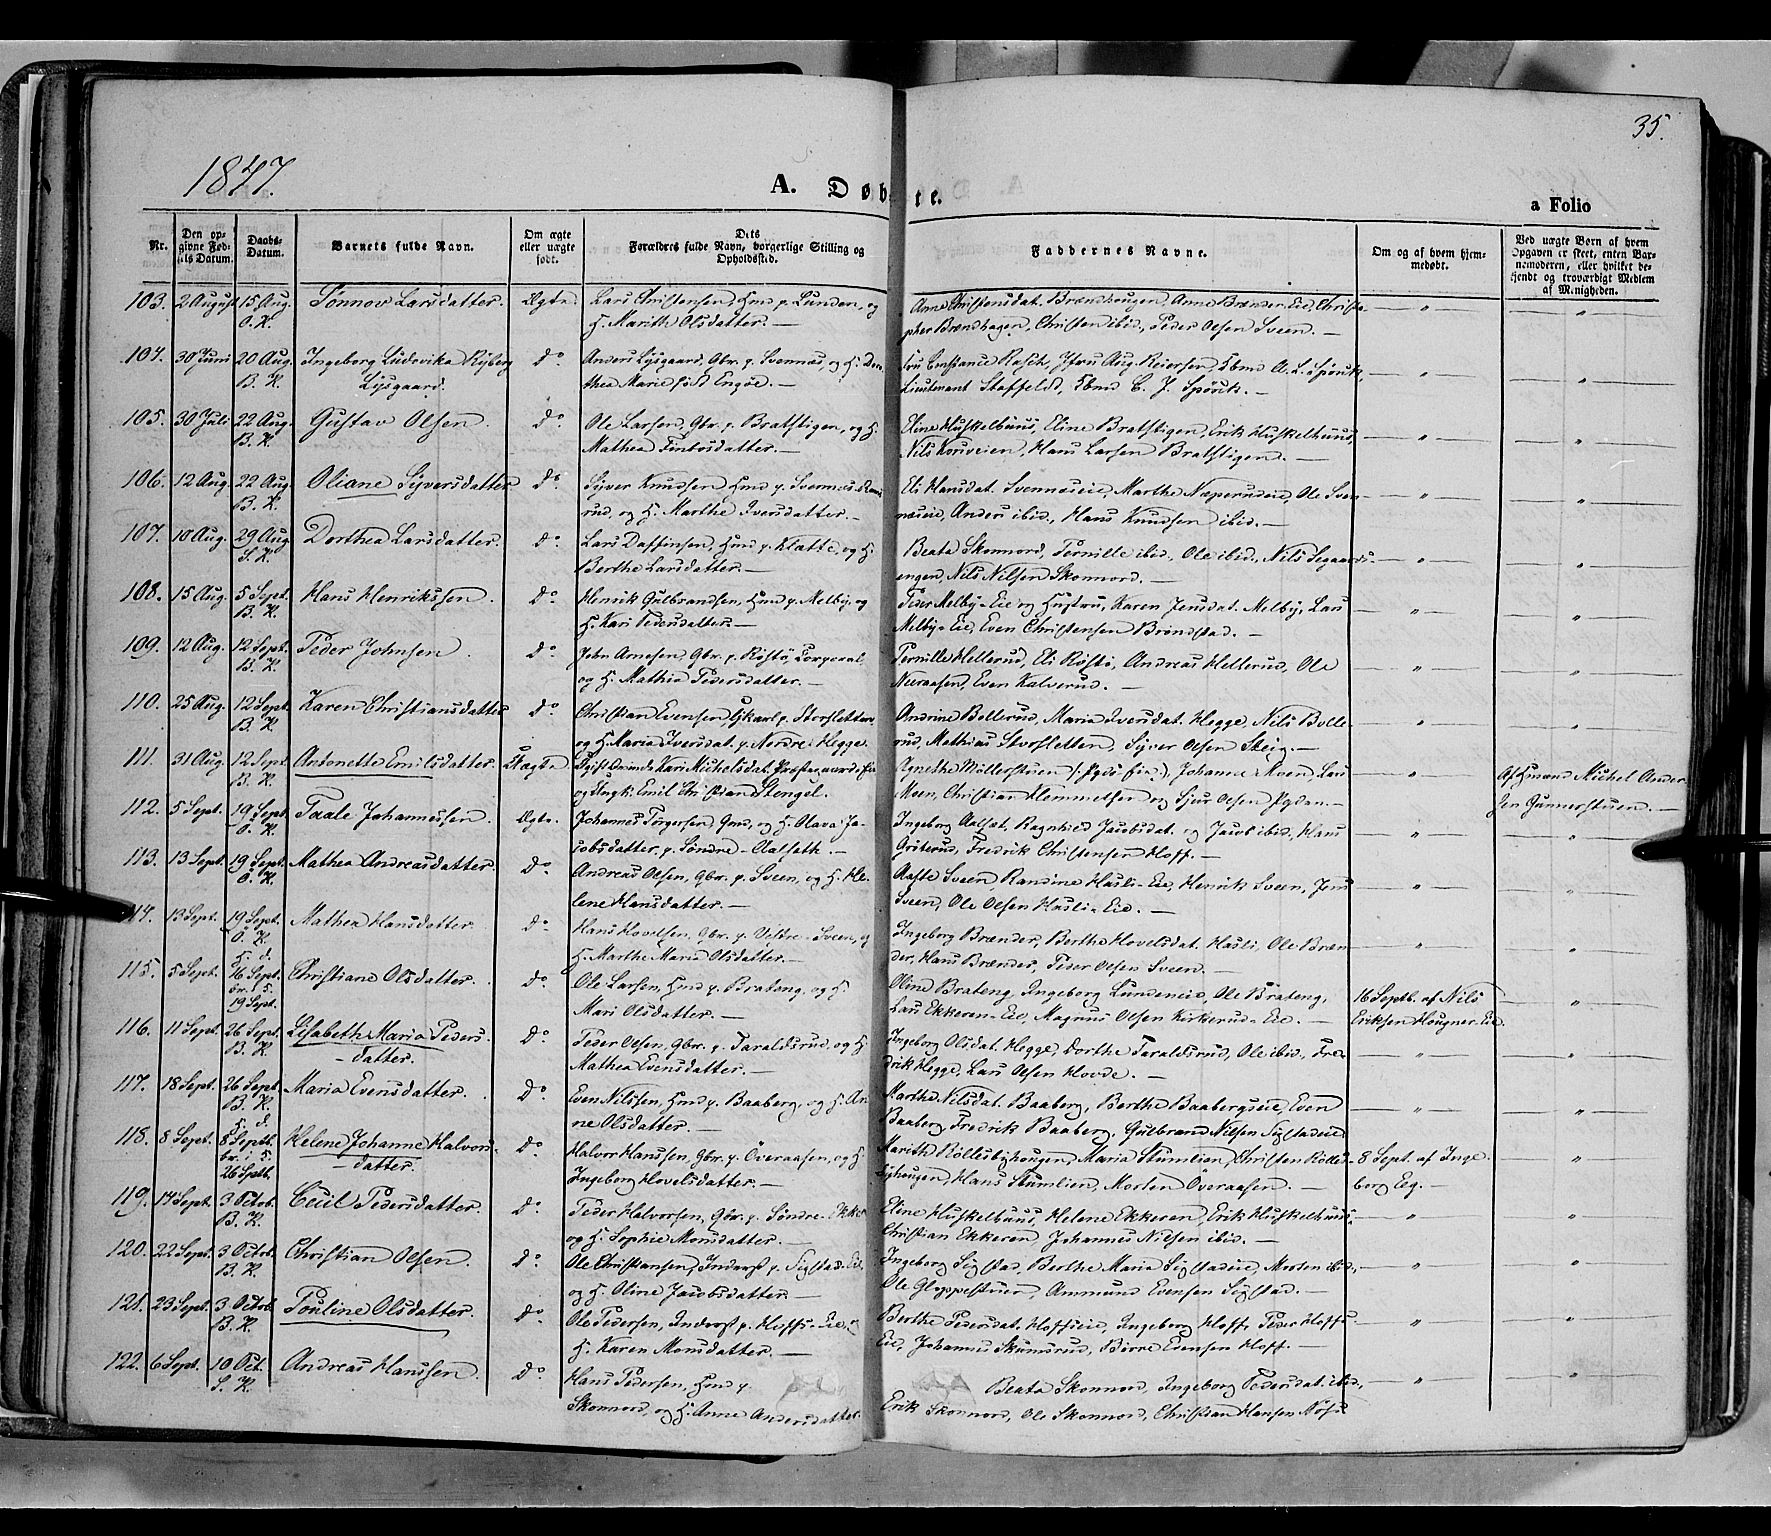 35.
1847.
A. Døbte.
a Folio
Nr.
Den opgivne Fødsels Datum.
Daabs-Datum.
Barnets fulde Navn.
Om ægte eller uægte født.
Dets Forældres fulde Navn, borgerlige Stilling og Opholdssted.
Faddernes Navne.
Om og af hvem hjemmedøbt.
Ved uægte Børn af hvem Opgaven er skeet, enten Barnemoderen, eller hvilket bekjendt og troværdigt Medlem af Menigheden.
103. 2 August 15 Aug. Sønnov Larsdatter. Ægte. Lars Christensen, Hmd p. Lunden, og Anne Christensdat. Brændhougen, Anne Brænder-Eie, Christo- — " —
O. K. H. Marith Olsdatter. — pher Brændhagen, Christen ibid, Peder Olsen Sveen. — "
104. 30 Juni 20 Aug. Ingeborg Ludovika Ryberg D° Anders Lysgaard, Gbr. p. Svennæs, og H. Doro- Fru Constance Rasch, Jfru Aug. Reiersen, Kbmd A. L. Spørck, — " —
B. K. Lysgaard. thea Marie født Engøe. — Lieutenant Staffeldt, Kbmd C. J. Spørck. — "
105. 30 Juli 22 Aug. Gustav Olsen. D° Ole Larsen, Gbr. p. Bratstigen, og H. Eline Huskelhuus, Eline Bratstigen, Erik Huskelhuus, — " —
B. K. Mathea Finbosdatter. — Nils Korsveien, Hans Larsen Bratstigen. — "
106. 12 Aug. 22 Aug. Oliane Syversdatter D° Syver Knudsen Hmd p. Svennæs- Eli Hansdat. Svennæseie, Marthe Næperudeie, Ole Sven- — " —
B. K. rud, og H. Marthe Iversdatter. — næseie, Anders ibid, Hans Knudsen ibid. — "
107. 10 Aug. 29 Aug. Dorthea Larsdatter. D° Lars Daffinsen, Hmd p. Klatte, og H. Beata Skonnord, Pernille ibid, Ole ibid, Nils Segaards- — " —
S. K. Berthe Larsdatter. — engen, Nils Nilsen Skonnord. — "
108. 15 Aug. 5 Sept. Hans Henriksen. D° Henrik Gulbrandsen, Hmd p. Melby, og Peder Melby-Eie og Hustru, Karen Jensdat. Melby, Lars — " —
B. K. H. Kari Pedersdatter. — Melby-Eie, Even Christensen Brøndstad. — "
109. 12 Aug. 12 Sept. Peder Johnsen. D° John Arnesen, Gbr. p. Røstø, Corporal, Pernille Hellerud, Eli Røstø, Andreas Hellerud, Ole — " —
B. K. og H. Mathia Pedersdatter. — Neeraasen, Even Kalverud. — "
110. 25 Aug. 12 Sept. Karen Christiansdatter D° Christian Evensen, Ejkarl p. Storsletten, Andrine Bollerud, Maria Iversdat. Hegge, Nils Bolle- — " —
B. K. og H. Maria Iversdat. p. Nordre-Hegge. rud, Mathias Storsletten, Syver Olsen Steig. — "
111. 31 Aug. 12 Sept. Antonette Emilsdatter. Uægte Ugift Qvinde Kari Michelsdat. Agnethe Møllerstuen, Johanne Moen, Lars — " — Af Hmand Michel Ander-
B. K. og Ungk. Emil Christian Stengel. Moen, Christian Hemmetsen og Sjur Olsen Rydan. — sen Gunnerstuen. —
112. 5 Sept. 19 Sept. Taale Johannessen. Ægte. Johannes Torgersen, Gmd, og H. Olava Ja- Ingeborg Aalsat, Ragnhild Jacobsdat. og Jacob ibid, Hans — " —
O. K. cobsdatter p. Søndre-Aalseth. — Griterud, Fredrik Christensen Hoff. — "
113. 13 Sept. 19 Sept. Mathea Andreasdatter. D° Andreas Olsen, Gbr. p. Sveen, og H. He- Aaste Sveen, Randine Husli-Eie, Henrik Sveen, Jens — " —
O. K. lene Hansdatter. — Sveen, Ole Olsen Husli-Eie. — "
114. 13 Sept. 19 Sept. Mathea Hansdatter. D° Hans Hovelsen, Gbr. p. Vestre-Sveen, og Ingeborg Brænder, Berthe Hovelsdat. Husli, Ole Bræn- — " —
O. K. H. Marthe Maria Olsdatter. — der, Hans Brænder, Peder Olsen Sveen. — "
115. 5 Sept. H. d. 16 Sept. br. i S. 19 Sept. Christiane Olsdatter. D° Ole Larsen, Hmd p. Brateng, og H. Oline Brateng, Ingeborg Lundeneie, Ole Brateng, 16 Septb. af Nils "
Mari Olsdatter. — Lars Ekkeren-Eie, Magnus Olsen Kirkerud-Eie. — Eriksen Hougner-Eie.
116. 11 Sept. 26 Sept. Lisabeth Maria Peders- D° Peder Olsen, Gbr. p. Taraldsrud, og H. Ingeborg Olsdat. Hegge, Dorthe Taraldsrud, Ole ibid, Fre- — " —
B. K. datter. Mathea Evensdatter. — drik Hegge, Lars Olsen Hovde. — "
117. 18 Sept. 26 Sept. Maria Evensdatter. D° Even Nilsen, Hmd p. Baaberg, og H. An- Marthe Nilsdat. Baaberg, Berthe Baabergseie, Even — " —
B. K. ne Olsdatter. — Baaberg, Fredrik Baaberg, Gulbrand Nilsen Sigstadeie. "
118. 8 Sept. H. d. 8 Septb. br. i S. 26 Septb. Helene Johanne Halvors- D° Halvor Hanssen, Gbr. p. Øveraasen, og H. Marith Røllesbyhougen, Maria Stumlien, Christen Rølles- 8 Sept. af Inge- "
datter. Ingeborg Hovelsdatter. — byhougen, Hans Stumlien, Morten Øveraasen. — borg Eeg. —
119. 14 Sept. 3 Octob. Cecil Pedersdatter. D° Peder Halvorsen, Gbr. p. Søndre-Ekker Eline Huskelhuus, Helene Ekkeren, Erik Huskelhuus, — " —
B. K. og H. Sophie Monsdatter. — Christian Ekkeren, Johannes Nilsen ibid. — "
120. 22 Sept. 3 Octob. Christian Olsen. D° Ole Christiansen, Inderst p. Sigstad-Eie Ingeborg Sigstad, Berthe Maria Sigstadeie, Morten ibid, — " —
B. K. og H. Oline Jacobsdatter. — Ole Gloppestuen, Ammund Evensen Sigstad. — "
121. 23 Sept. 3 Octob. Pouline Olsdatter. D° Ole Pedersen, Inderst p. Hoffs-Eie, og Berthe Pedersdat. Hoffseie, Ingeborg Hoff, Peder Hoffs- — " —
B. K. H. Karen Monsdatter. — Eie, Johannes Skumsrud, Børre Evensen Hoff. — "
122. 6 Sept. 10 Oct. Andreas Hanssen. D° Hans Pedersen, Hmd p. Beata Skonnord, Ingeborg Pedersdat. ibid, — " —
S. K. Skonnord, og H. Anne Andersdatter. Erik Skonnord, Ole Skonnord, Christian Hansen "